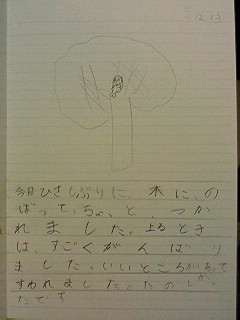 2 13
今日ひさしぶりに、木に、の
ぼって、ちょっと、つか
れました。上るとき
は、すごくがんばり
ました。いいところがあって
すわれました。たのしかっ
たです